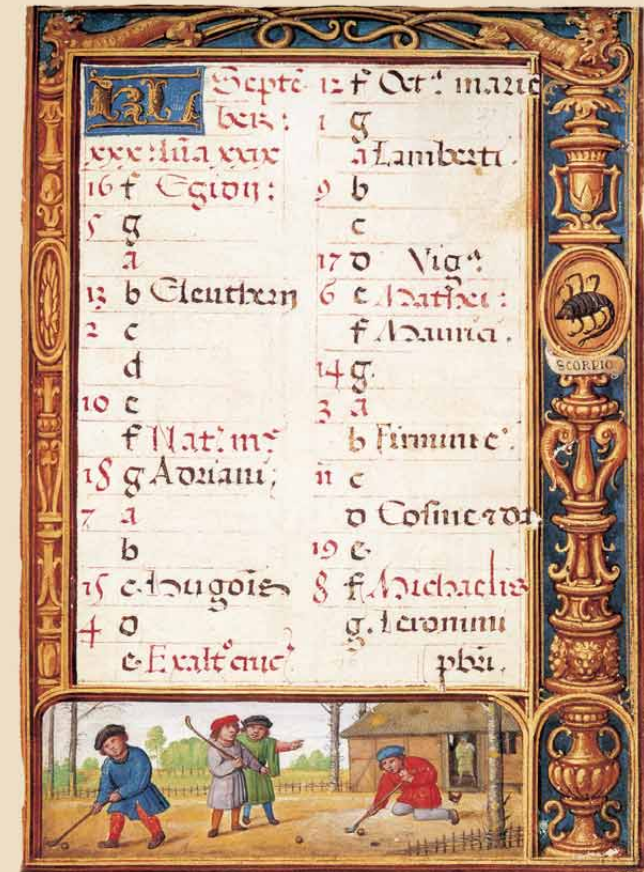 KL Septē-
ber:
xxx: lūa xxix
16 f Egidij:
5 g
a
13 b Eleutherij
2 c
d
10 e
f Nat: m:
18 g Adriani;
7 a
b
15 c Hugois
4 d
e Exalt° cruc:
12 f Oct: marie
1 g
a Lamberti.
9 b
c
17 d Vig:
6 e Mathei:
f Maurici.
14 g.
3 a
b Firmini e:
11 c
d Cosme ⁊ da
19 e
8 f Michaelis
g. Ieronimi
pbri.
SCORPIO